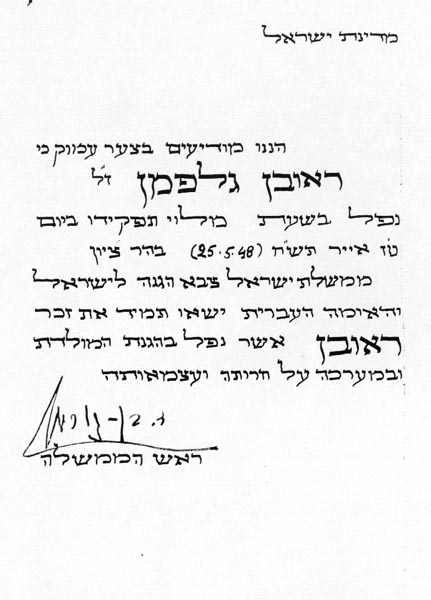 מדינת ישראל
הננו מודיעים בצער עמוק כי
ראובן גלפמן ז"ל
נפל בשעת מלוי תפקידו ביום
ט"ז אייר תש"ח (25.5.48) בהר ציון
ממשלת ישראל צבא הגנה לישראל
והאומה העברית ישאו תמיד את זכר
ראובן אשר נפל בהגנת המולדת
ובמערכה על חרותה ועצמאותה
ד. בן-גוריון
ראש הממשלה